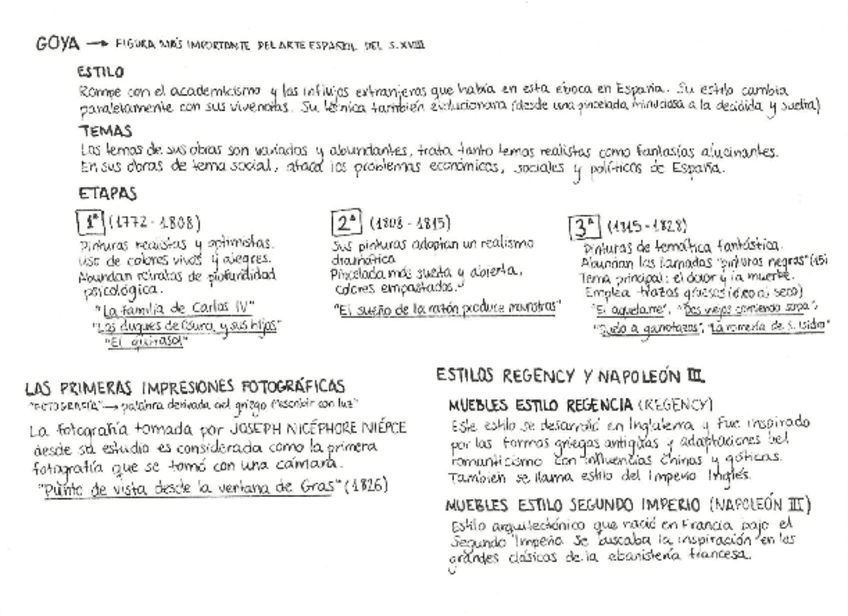 GOYA → FIGURA MÁS IMPORTANTE DEL ARTE ESPAÑOL DEL S.XVIII
ESTILO
Rompe con el academicismo y las influjos extranjeros que había en esta época en España. Su estilo cambia
paralelamente con sus vivencias. Su técnica también evolucionara (desde una pincelada minuciosa a la decidida y suelta)
TEMAS
Los temas de sus obras son variados y abundantes, trata tanto temas realistas como fantasías alucinantes.
En sus obras de tema social, ataca los problemas económicos, sociales y políticos de España.
ETAPAS
1ª (1772-1808)
Pinturas realistas y optimistas.
Uso de colores vivos y alegres.
Abundan retratos de profundidad
psicológica.
"La familia de Carlos IV"
"Los duques de Osuna y sus hijos"
"El quitasol"
2ª (1808-1815)
Sus pinturas adoptan un realismo
dramático
Pincelada más suelta y abierta,
colores empastados.
"El sueño de la razón produce monstruos"
3ª (1815-1828)
Pinturas de temática fantástica.
Abundan las llamadas "pinturas negras"
Tema principal: el dolor y la muerte.
Emplea trazos gruesos (óleo al seco)
"El aquelarre", "Dos viejos comiendo sopa",
"Duelo a garrotazos", "La romería de S. Isidro"
LAS PRIMERAS IMPRESIONES FOTOGRÁFICAS
"FOTOGRAFÍA" → palabra derivada del griego ("escribir con luz"
La fotografía tomada por JOSEPH NICÉPHORE NIÉPCE
desde su estudio es considerada como la primera
fotografía que se tomó con una cámara.
"Punto de vista desde la ventana de Gras" (1826)
ESTILOS REGENCY Y NAPOLEÓN III
MUEBLES ESTILO REGENCIA (REGENCY)
Este estilo se desarrolló en Inglaterra y fue inspirado
por las formas griegas antiguas y adaptaciones del
romanticismo con influencias chinas y góticas.
También se llama estilo del Imperio Inglés.
MUEBLES ESTILO SEGUNDO IMPERIO (NAPOLEÓN III)
Estilo arquitectónico que nació en Francia bajo el
Segundo Imperio. Se buscaba la inspiración en los
grandes clásicos de la ebanistería francesa.